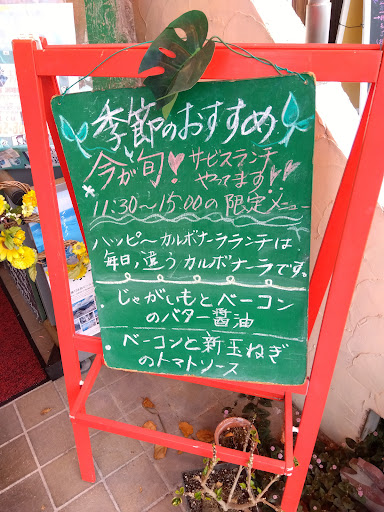 季節のおすすめ
今が旬♥サービスランチ
やってます!!
11:30〜15:00の限定メニュー
ハッピーカルボナーラランチは、
毎日、違うカルボナーラです。
・じゃがいもとベーコン
のバター醤油
・ベーコンと新玉ねぎ
のトマトソース